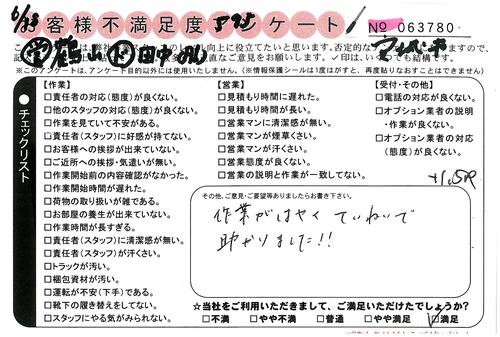 6/23 お客様不満足度アンケート! No 063780
営 鶴山 作 田中
※このアンケートは、アンケート目的以外には使用いたしません。(※情報保護シールは1度はがすと、再度貼りなおすことはできません)
チェックリスト
【作業】
□責任者の対応(態度)が良くない。
□他のスタッフの対応(態度)が良くない。
□作業を見ていて不安がある。
□責任者(スタッフ)に好感が持てない。
□お客様への挨拶が出来ていない。
□ご近所への挨拶・気遣いが無い。
□作業開始前の内容確認がなかった。
□作業開始時間が遅れた。
□荷物の取り扱いが雑である。
□お部屋の養生が出来ていない。
□作業時間が長すぎる。
□責任者(スタッフ)に清潔感が無い。
□責任者(スタッフ)が汗くさい。
□トラックが汚い。
□梱包資材が汚い。
□運転が不安(下手)である。
□靴下の履き替えをしてない。
□スタッフにやる気がみられない。
【営業】
□見積もり時間に遅れた。
□見積もり時間が長い。
□営業マンに清潔感が無い。
□営業マンが煙草くさい。
□営業マンが汗くさい。
□営業態度が良くない。
□営業の説明と作業が一致してない。
【受付・その他】
□電話の対応が良くない。
□オプション業者の説明
・作業が良くない。
□オプション業者の対応
(態度)が良くない。
+1.5P
その他、ご意見・ご要望等ありましたらお書き下さい。
作業がはやくていねいで
助かりました!!
☆当社をご利用いただきまして、ご満足いただけたでしょうか?
□不満 □やや不満 □普通 □やや満足 ☑満足